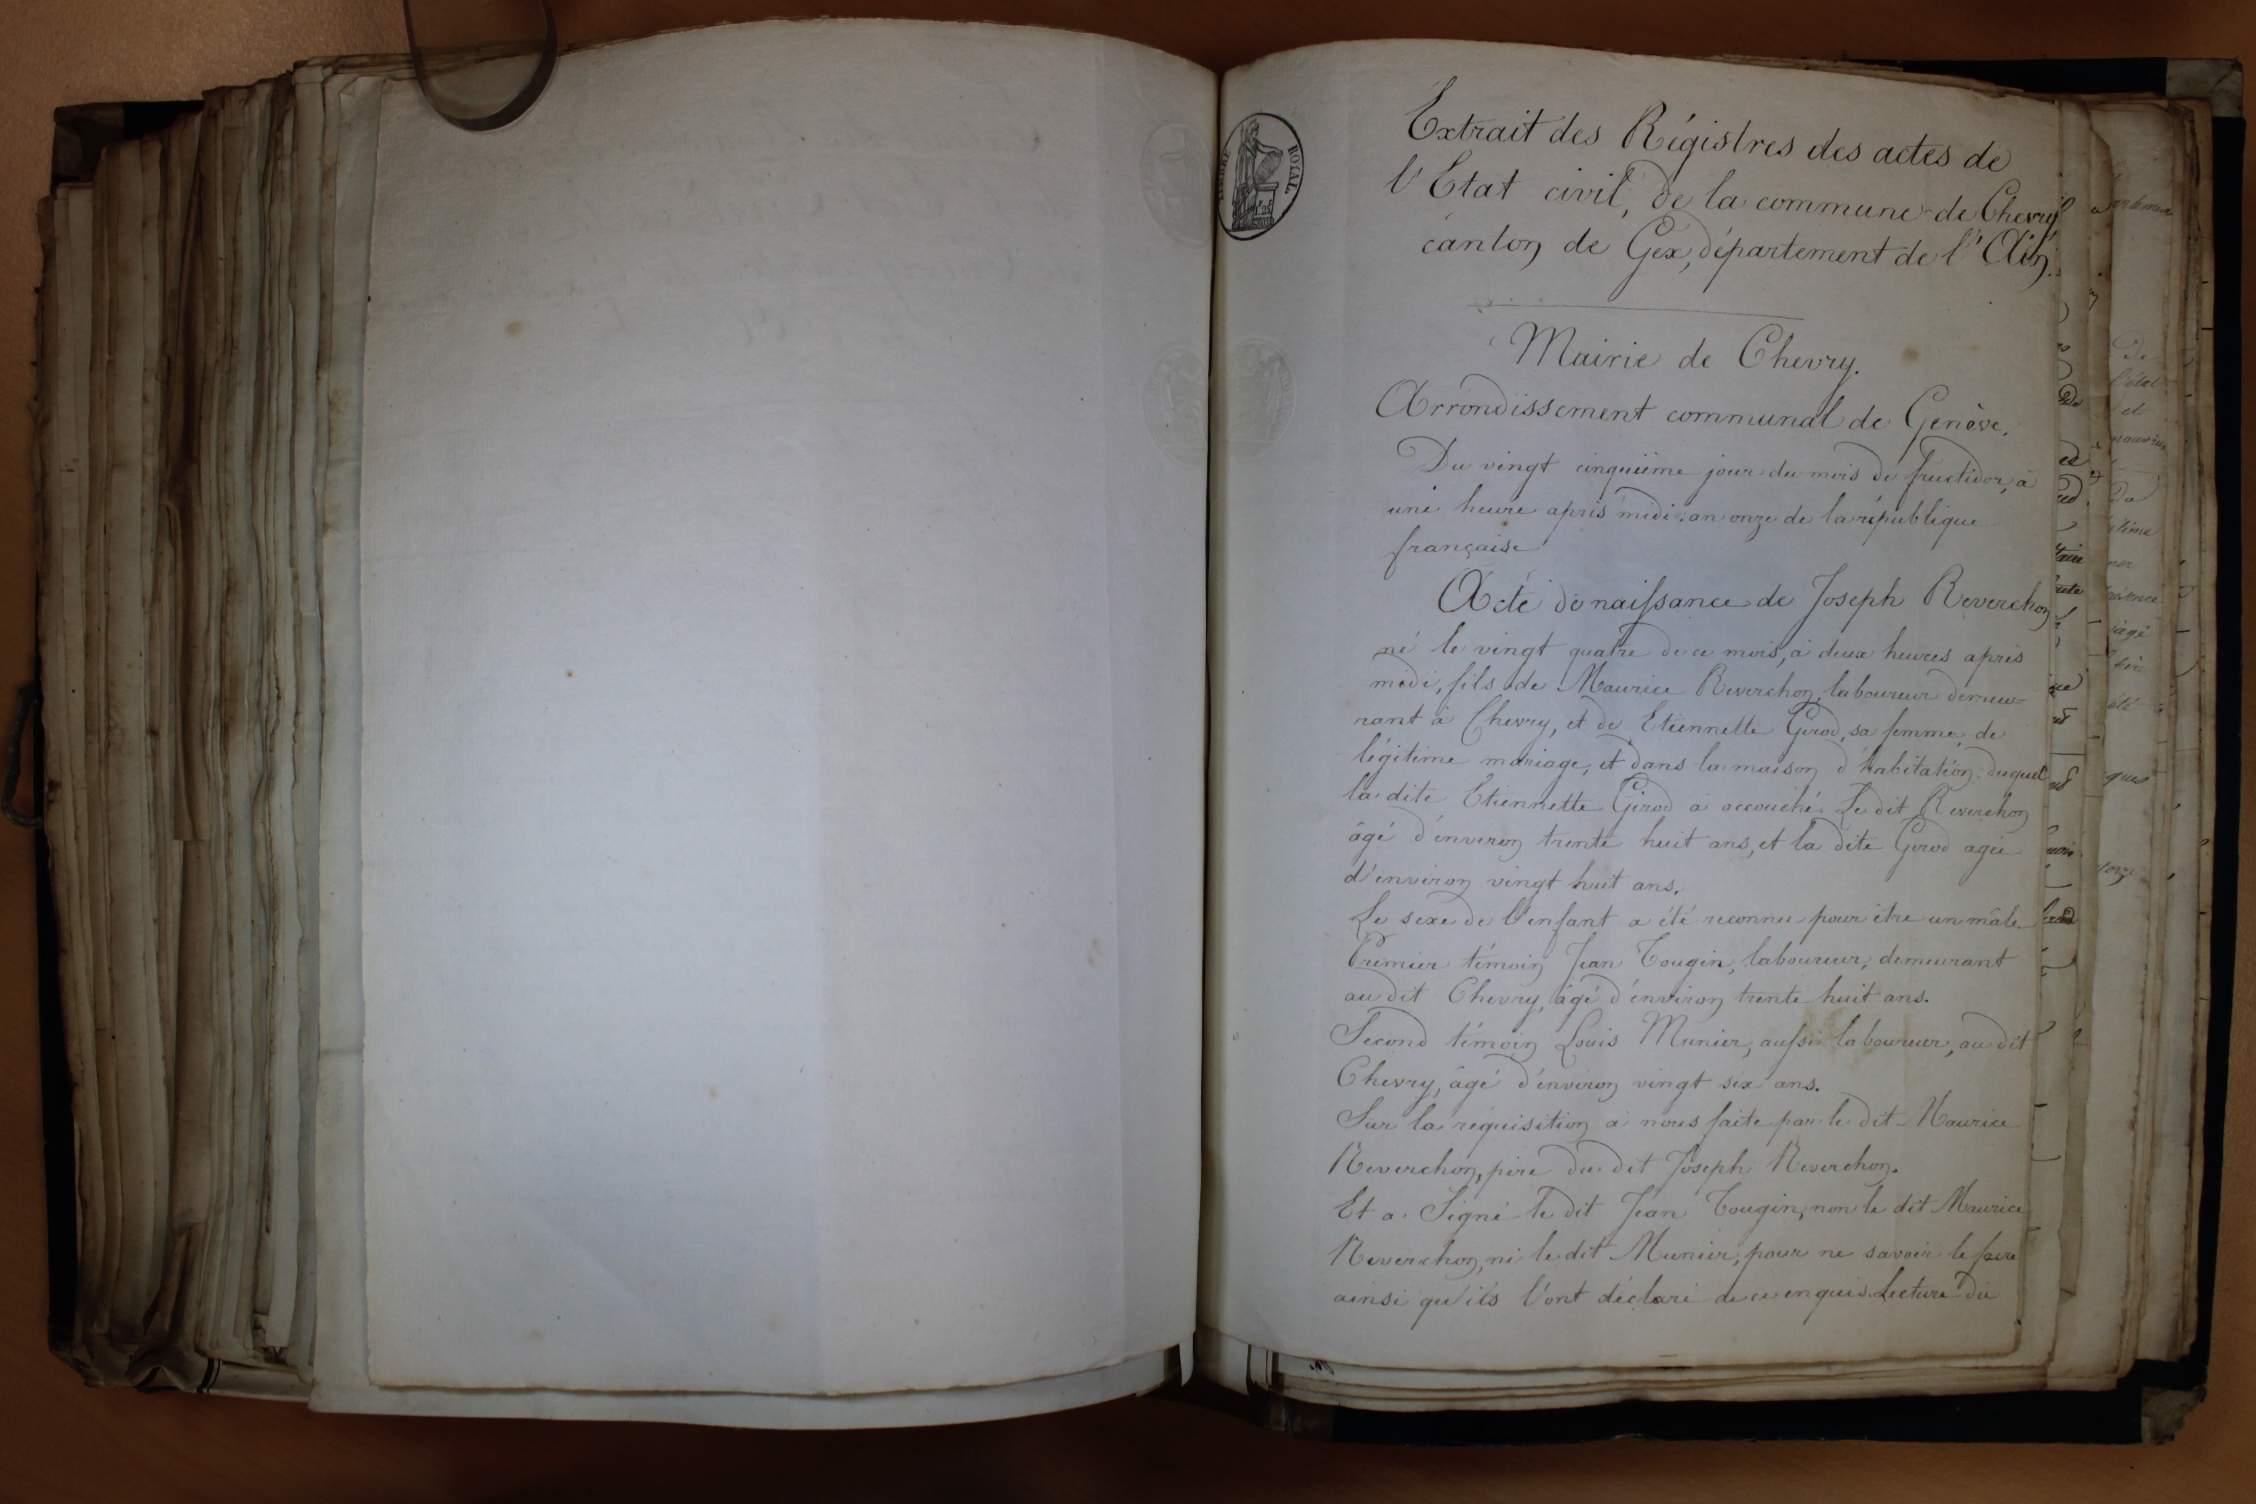 TIMBRE ROYAL
Extrait des Régistres des actes de
l'Etat civil, de la commune de Chevry
canton de Gex, département de l'Ain.
Mairie de Chevry.
Arrondissement communal de Genève.
Du vingt cinquième jour du mois de fructidor, à
une heure après midi an onze de la république
française
Acte de naissance de Joseph Reverchon
né le vingt quatre de ce mois, à deux heures après
midi, fils de Maurice Reverchon, laboureur demeu-
rant à Chevry, et de Etiennette Girod, sa femme, de
légitime mariage, et dans la maison d'habitation duquel
la dite Etiennette Girod a accouché. Le dit Reverchon
âgé d'environ trente huit ans, et la dite Girod agée
d'environ vingt huit ans.
Le sexe de l'enfant a été reconnu pour être un mâle.
Premier témoin Jean Tougin, laboureur, demeurant
au dit Chevry, âgé d'environ trente huit ans.
Second témoin Louis Munier, aussi laboureur, au dit
Chevry, âgé d'environ vingt six ans.
Sur la réquisition à nous faite par le dit Maurice
Reverchon, père du dit Joseph Reverchon.
Et a Signé le dit Jean Tougin, non le dit Maurice
Reverchon, ni le dit Munier, pour ne savoir le faire
ainsi qu'ils l'ont déclaré de ce enquis. Lecture du